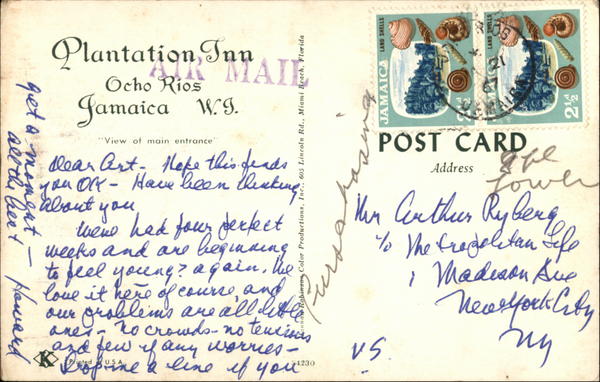 Plantation Inn
AIR MAIL
Ocho Rios
Jamaica W.I.
"View of main entrance"
Dear Art - Hope this finds
you OK - Have been thinking
about you
Weve had four perfect
weeks and are beginning
to feel young? again. We
love it here of course and
our problems are all little
ones - no crowds - no tensions
and few if any worries -
Drop me a line if you
get a moment -
all the best - Howard
K
Printed in U.S.A.
Color Productions, Inc., 605 Lincoln Rd., Miami Beach, Florida
Purchasing
LAND SHELLS
JAMAICA
LAND SHELLS
JAMAICA
2½d
POST CARD
Address
9 fl
Tower
Mr Arthur Ryberg
c/o Metropolitan Life
1 Madison Ave
New York City
NY
US.